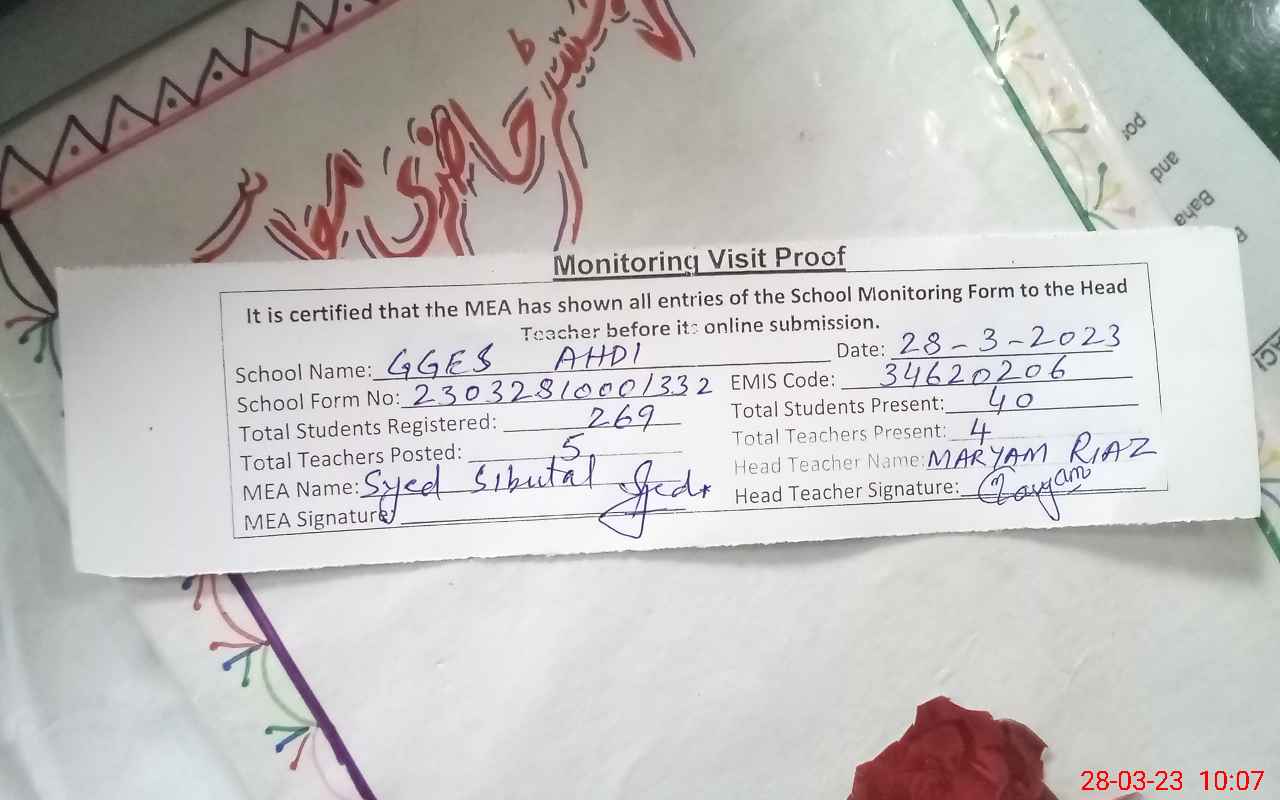 رجسٹر حاضری
por
and
Baha
Monitoring Visit Proof
It is certified that the MEA has shown all entries of the School Monitoring Form to the Head
Teacher before its online submission.
School Name: GGES AHDI Date: 28-3-2023
School Form No: 23032810001332 EMIS Code: 34620206
Total Students Registered: 269 Total Students Present: 40
Total Teachers Posted: 5 Total Teachers Present: 4
MEA Name: Syed Sibutal Head Teacher Name: MARYAM RIAZ
MEA Signature: Syed Head Teacher Signature: Maryam
28-03-23 10:07